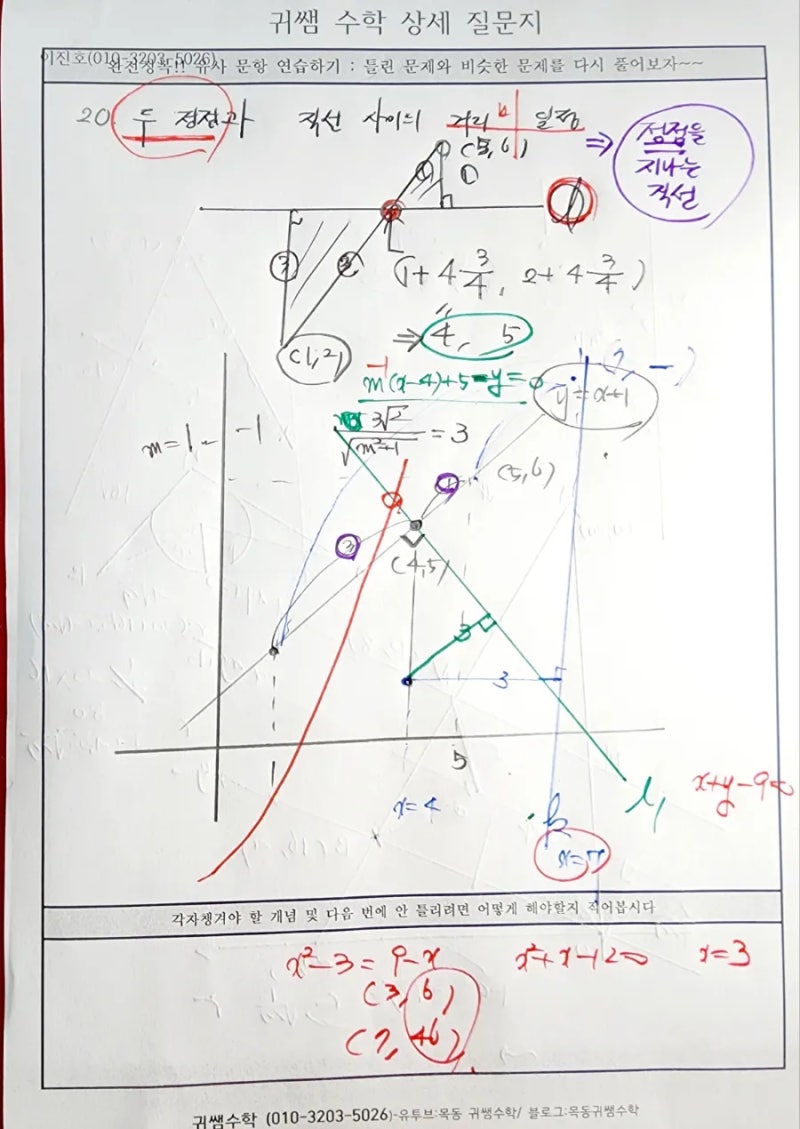 귀쌤 수학 상세 질문지
이진호(010-3203-5026)
완전정복!! 유사 문항 연습하기 : 틀린 문제와 비슷한 문제를 다시 풀어보자~~
20. 두 정점과 직선 사이의 거리 일정
⇒ 정점을
지나는
직선
(5,6)
①
①
③
③
(1+4·3/4, 2+4·3/4)
(1,2)
⇒ 4, 5
m(x-4)+5-y=0
y=x+1
3√2/√(m²+1) = 3
m=1 -1
(5,6)
①
③
(4,5)
3
3
5
x=4
x=7
l₁
x+y-9=0
각자챙겨야 할 개념 및 다음 번에 안 틀리려면 어떻게 해야할지 적어봅시다
x²-3=9-x x²+x-12=0 x=3
(3,6)
(7,46)
귀쌤수학 (010-3203-5026)-유투브:목동 귀쌤수학/ 블로그:목동귀쌤수학